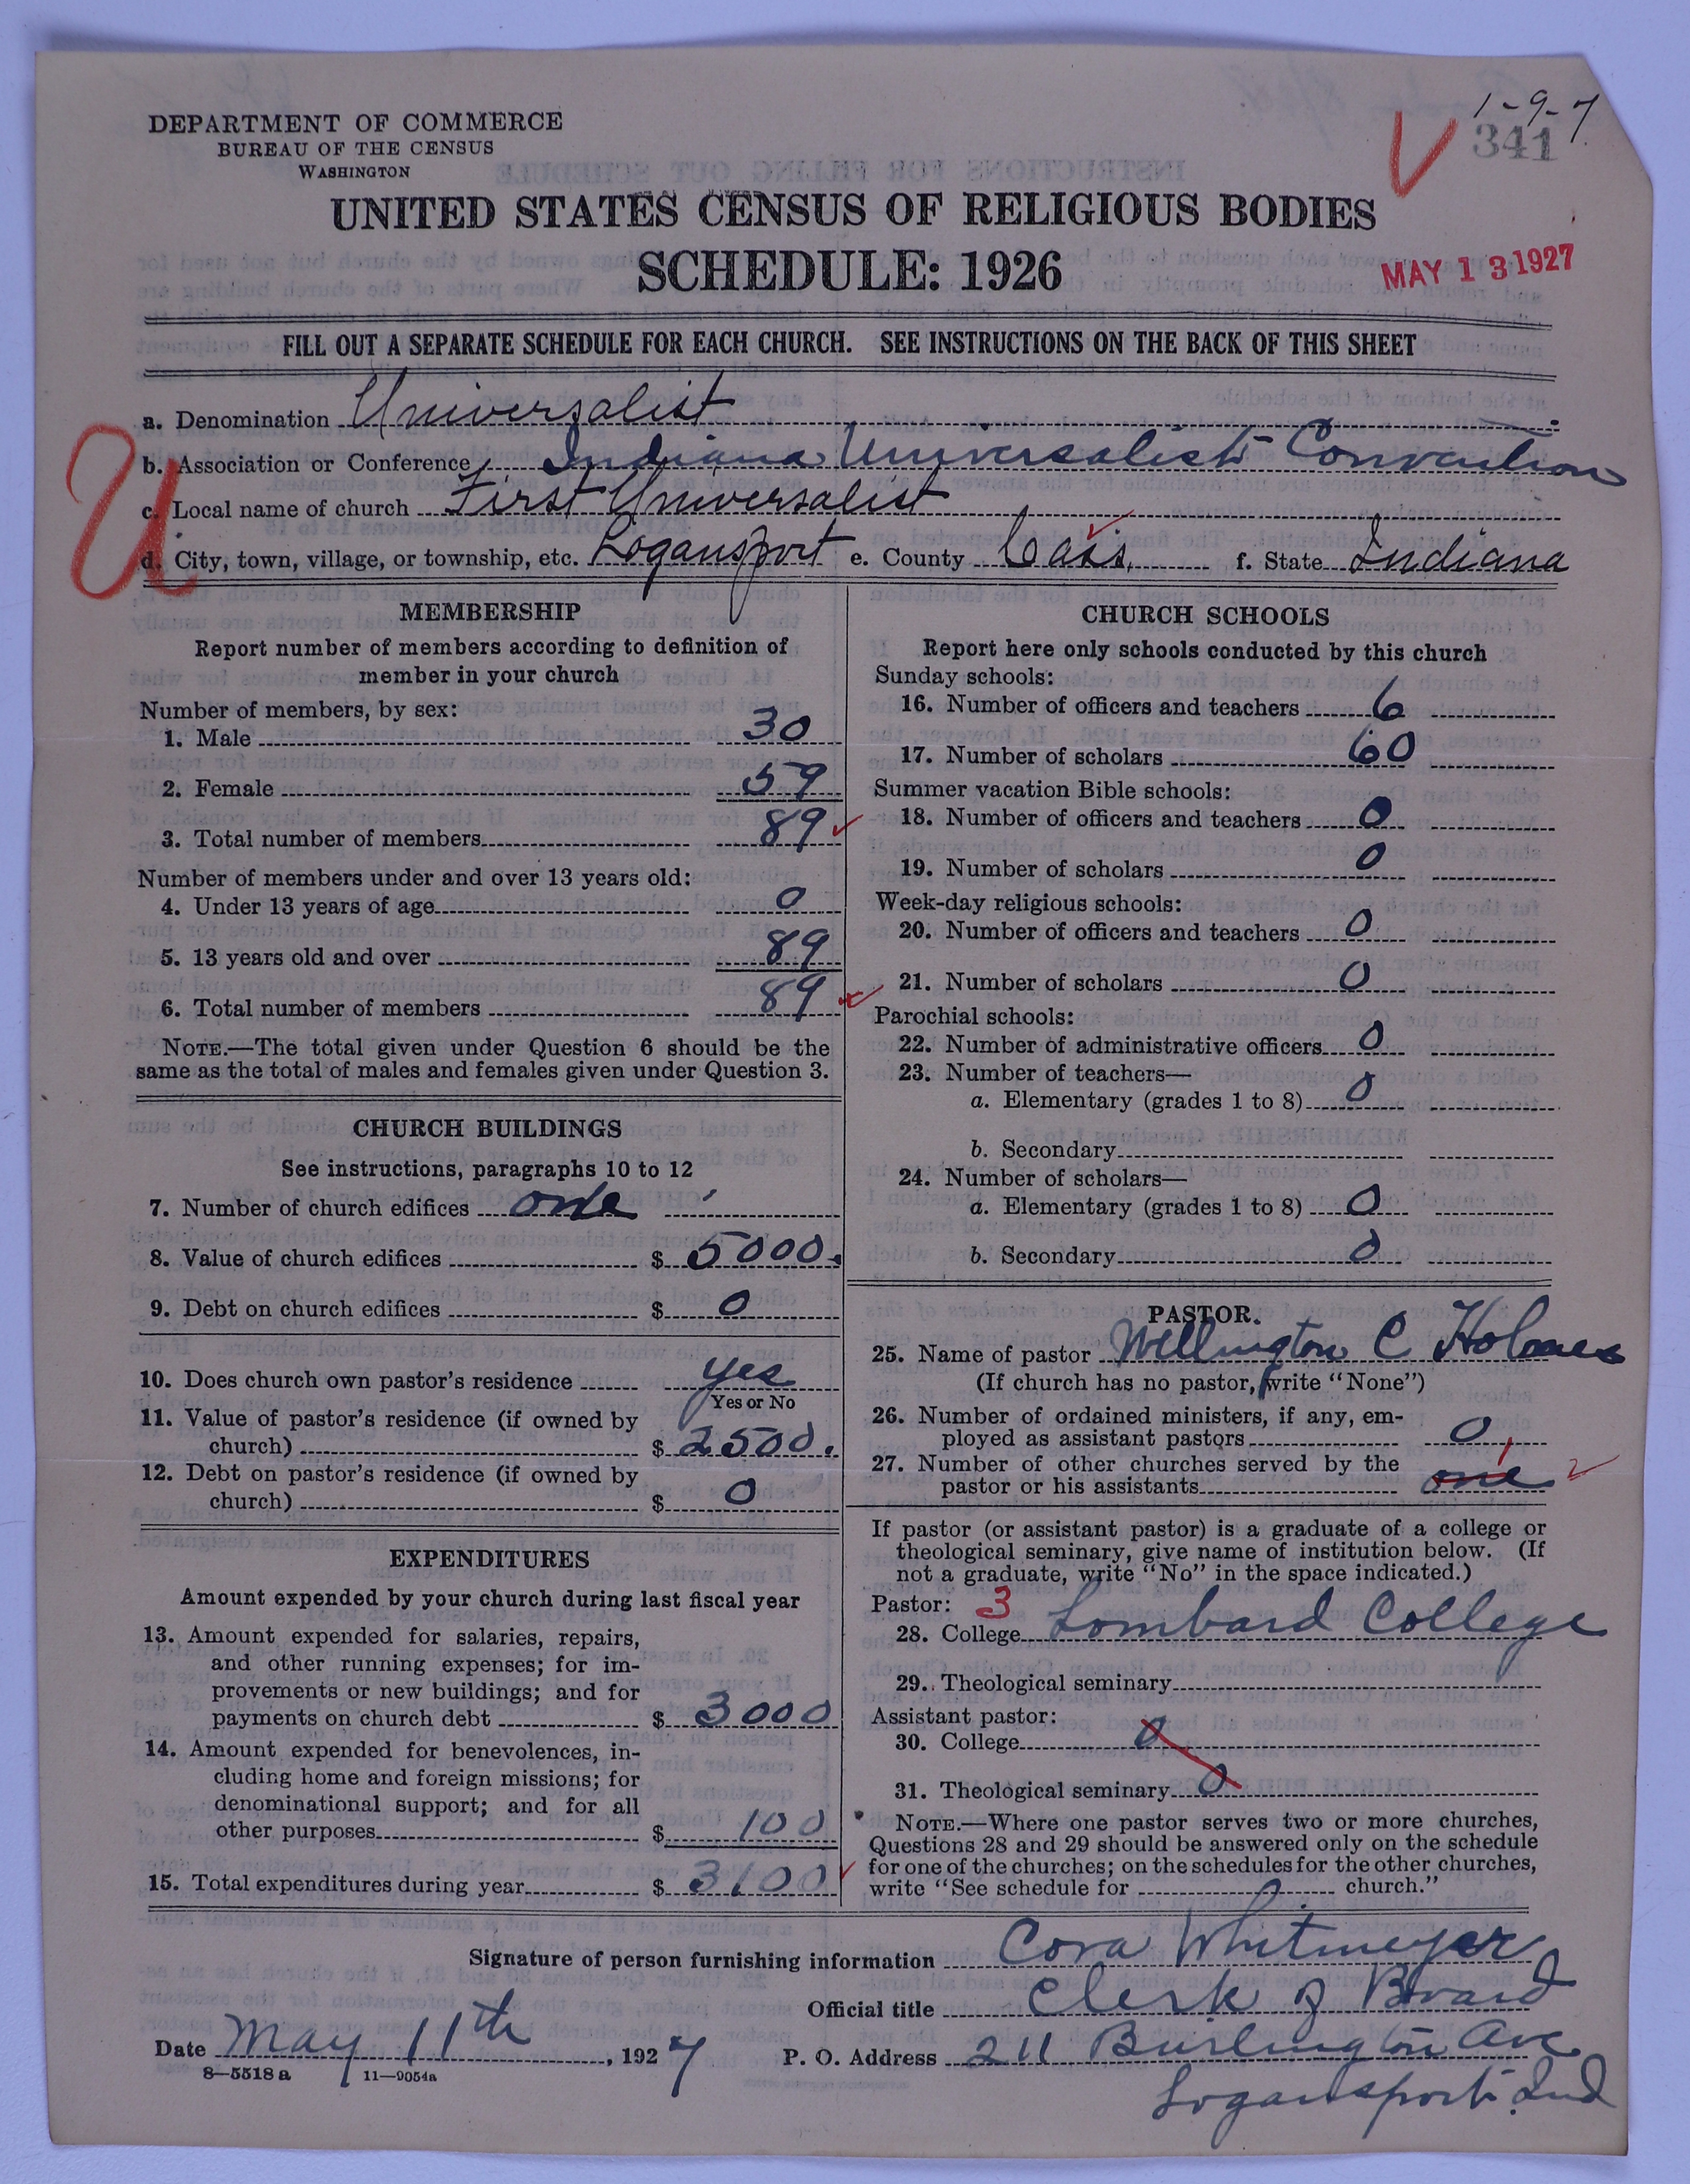 1-9-7
341
DEPARTMENT OF COMMERCE
BUREAU OF THE CENSUS
WASHINGTON
UNITED STATES CENSUS OF RELIGIOUS BODIES
SCHEDULE: 1926
MAY 13 1927
FILL OUT A SEPARATE SCHEDULE FOR EACH CHURCH. SEE INSTRUCTIONS ON THE BACK OF THIS SHEET
U
a. Denomination Universalist
b. Association or Conference Indiana Universalist Convention
c. Local name of church First Universalist
d. City, town, village, or township, etc. Logansport e. County Cass, f. State Indiana
MEMBERSHIP
Report number of members according to definition of
member in your church
Number of members, by sex:
1. Male 30
2. Female 59
3. Total number of members 89
Number of members under and over 13 years old:
4. Under 13 years of age 0
5. 13 years old and over 89
6. Total number of members 89
NOTE.—The total given under Question 6 should be the
same as the total of males and females given under Question 3.
CHURCH BUILDINGS
See instructions, paragraphs 10 to 12
7. Number of church edifices one
8. Value of church edifices $ 5000.
9. Debt on church edifices $ 0
10. Does church own pastor's residence yes
Yes or No
11. Value of pastor's residence (if owned by
church) $ 2500.
12. Debt on pastor's residence (if owned by
church) $ 0
EXPENDITURES
Amount expended by your church during last fiscal year
13. Amount expended for salaries, repairs,
and other running expenses; for im-
provements or new buildings; and for
payments on church debt $ 3000
14. Amount expended for benevolences, in-
cluding home and foreign missions; for
denominational support; and for all
other purposes $ 100
15. Total expenditures during year $ 3100
CHURCH SCHOOLS
Report here only schools conducted by this church
Sunday schools:
16. Number of officers and teachers 6
17. Number of scholars 60
Summer vacation Bible schools:
18. Number of officers and teachers 0
19. Number of scholars 0
Week-day religious schools:
20. Number of officers and teachers 0
21. Number of scholars 0
Parochial schools:
22. Number of administrative officers 0
23. Number of teachers—
a. Elementary (grades 1 to 8) 0
b. Secondary
24. Number of scholars—
a. Elementary (grades 1 to 8) 0
b. Secondary 0
PASTOR.
25. Name of pastor Wellington C Holmes
(If church has no pastor, write "None")
26. Number of ordained ministers, if any, em-
ployed as assistant pastors 0
27. Number of other churches served by the
pastor or his assistants one 1
If pastor (or assistant pastor) is a graduate of a college or
theological seminary, give name of institution below. (If
not a graduate, write "No" in the space indicated.)
Pastor: 3
28. College Lombard College
29. Theological seminary
Assistant pastor:
30. College 0
31. Theological seminary 0
NOTE.—Where one pastor serves two or more churches,
Questions 28 and 29 should be answered only on the schedule
for one of the churches; on the schedules for the other churches,
write "See schedule for church."
Signature of person furnishing information Cora Whitmeyer
Official title Clerk of Board
Date May 11th, 1927 P. O. Address 211 Burlington Ave
Logansport Ind
8—5518 a 11—9054a